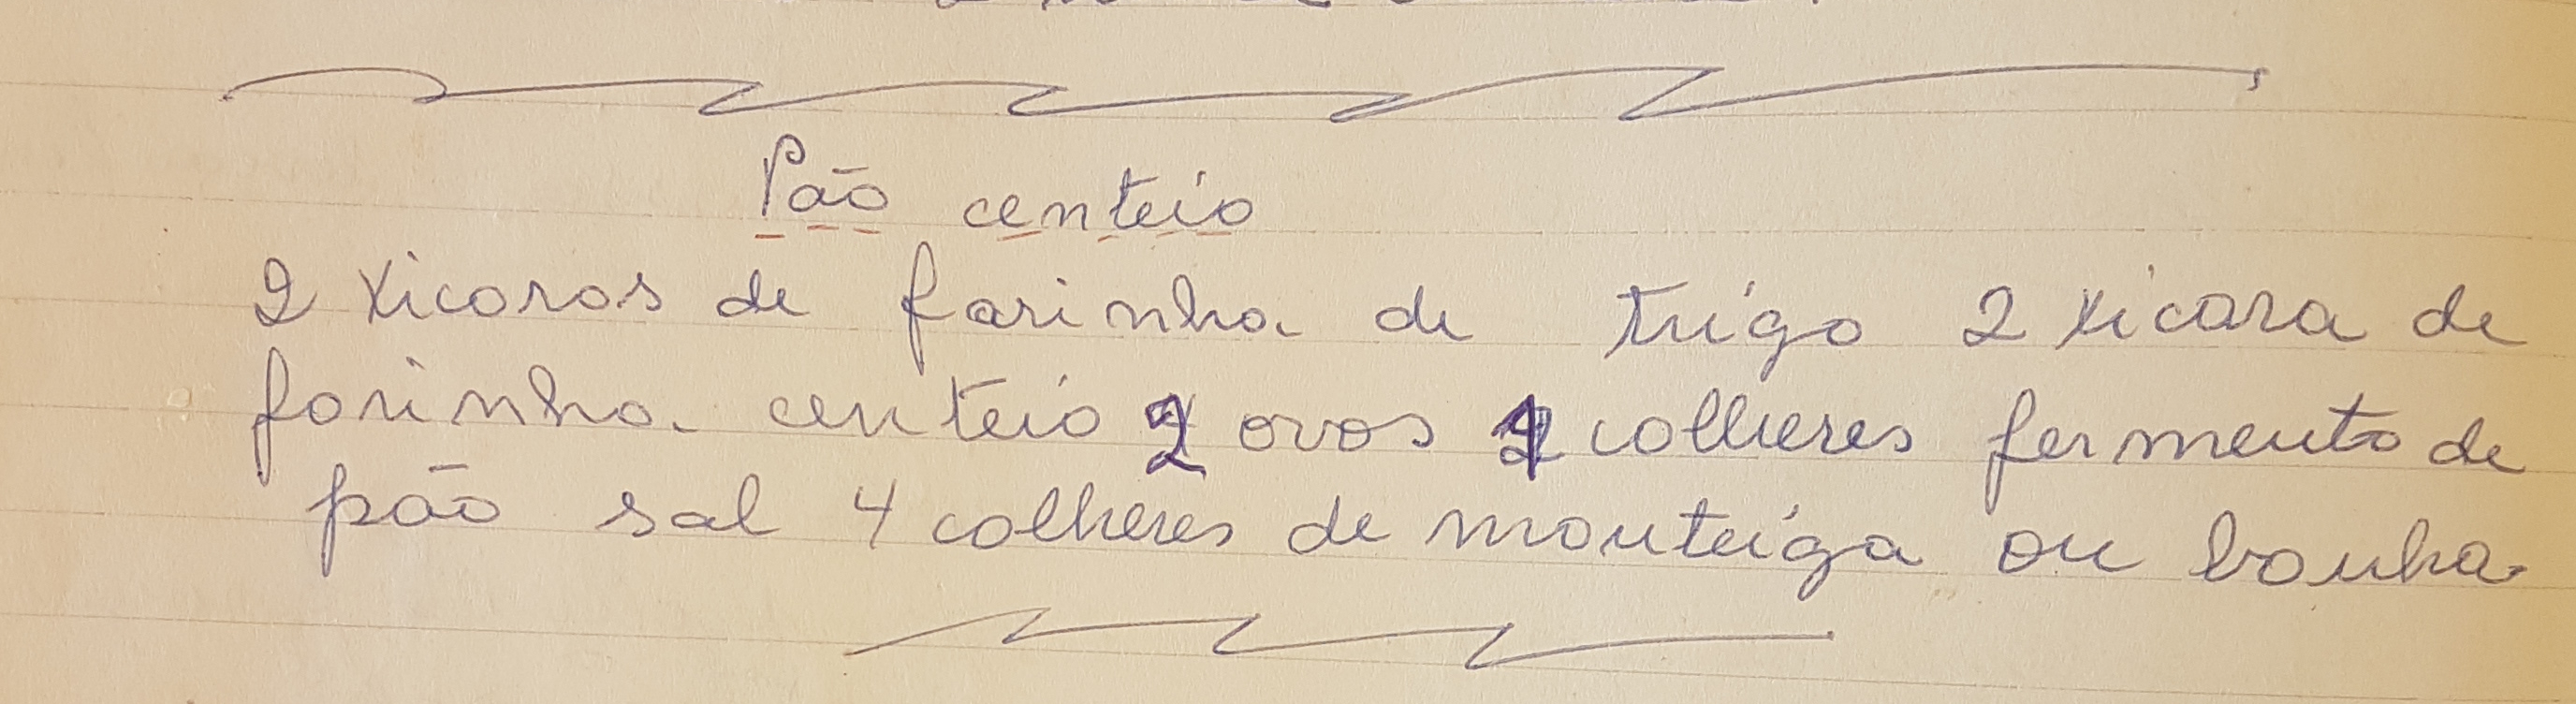 Pão centeio
2 xicaras de farinha de trigo 2 xicara de
farinha centeio 2 ovos colheres fermento de
pão sal 4 colheres de manteiga ou banha